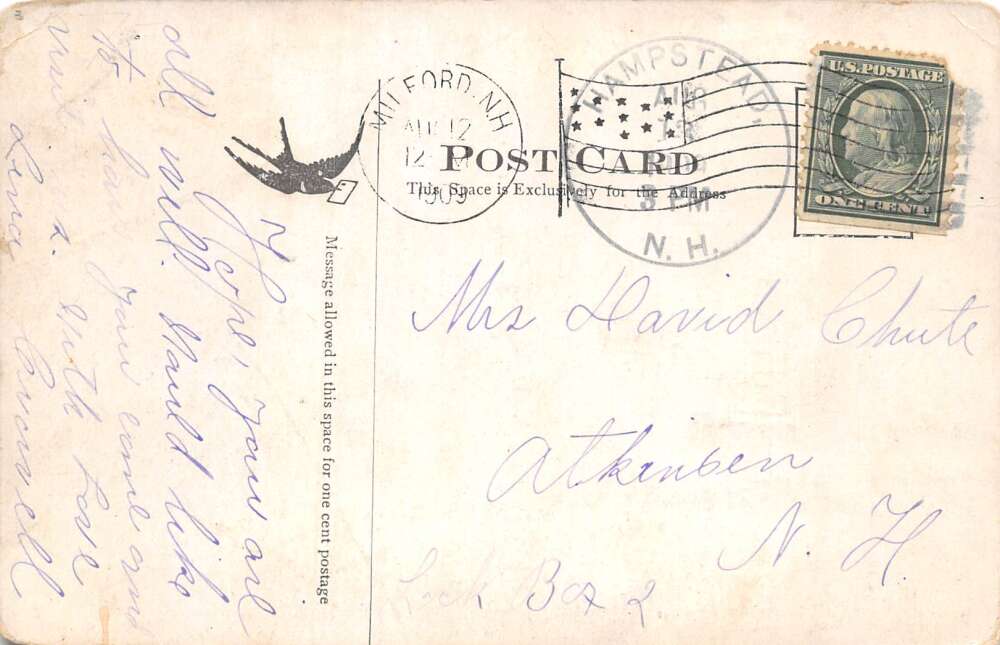 I Hope you are
all well. Would like
to have you come and
visit us. with Love
Lena Cromwell
Message allowed in this space for one cent postage
MILFORD. N.H
AUG 12
12 M
1909
HAMPSTEAD,
AUG
3 PM
N. H.
U.S. POSTAGE
ONE CENT
POST CARD
This Space is Exclusively for the Address
Mrs David Chute
Atkinson
N. H.
Lock Box 2